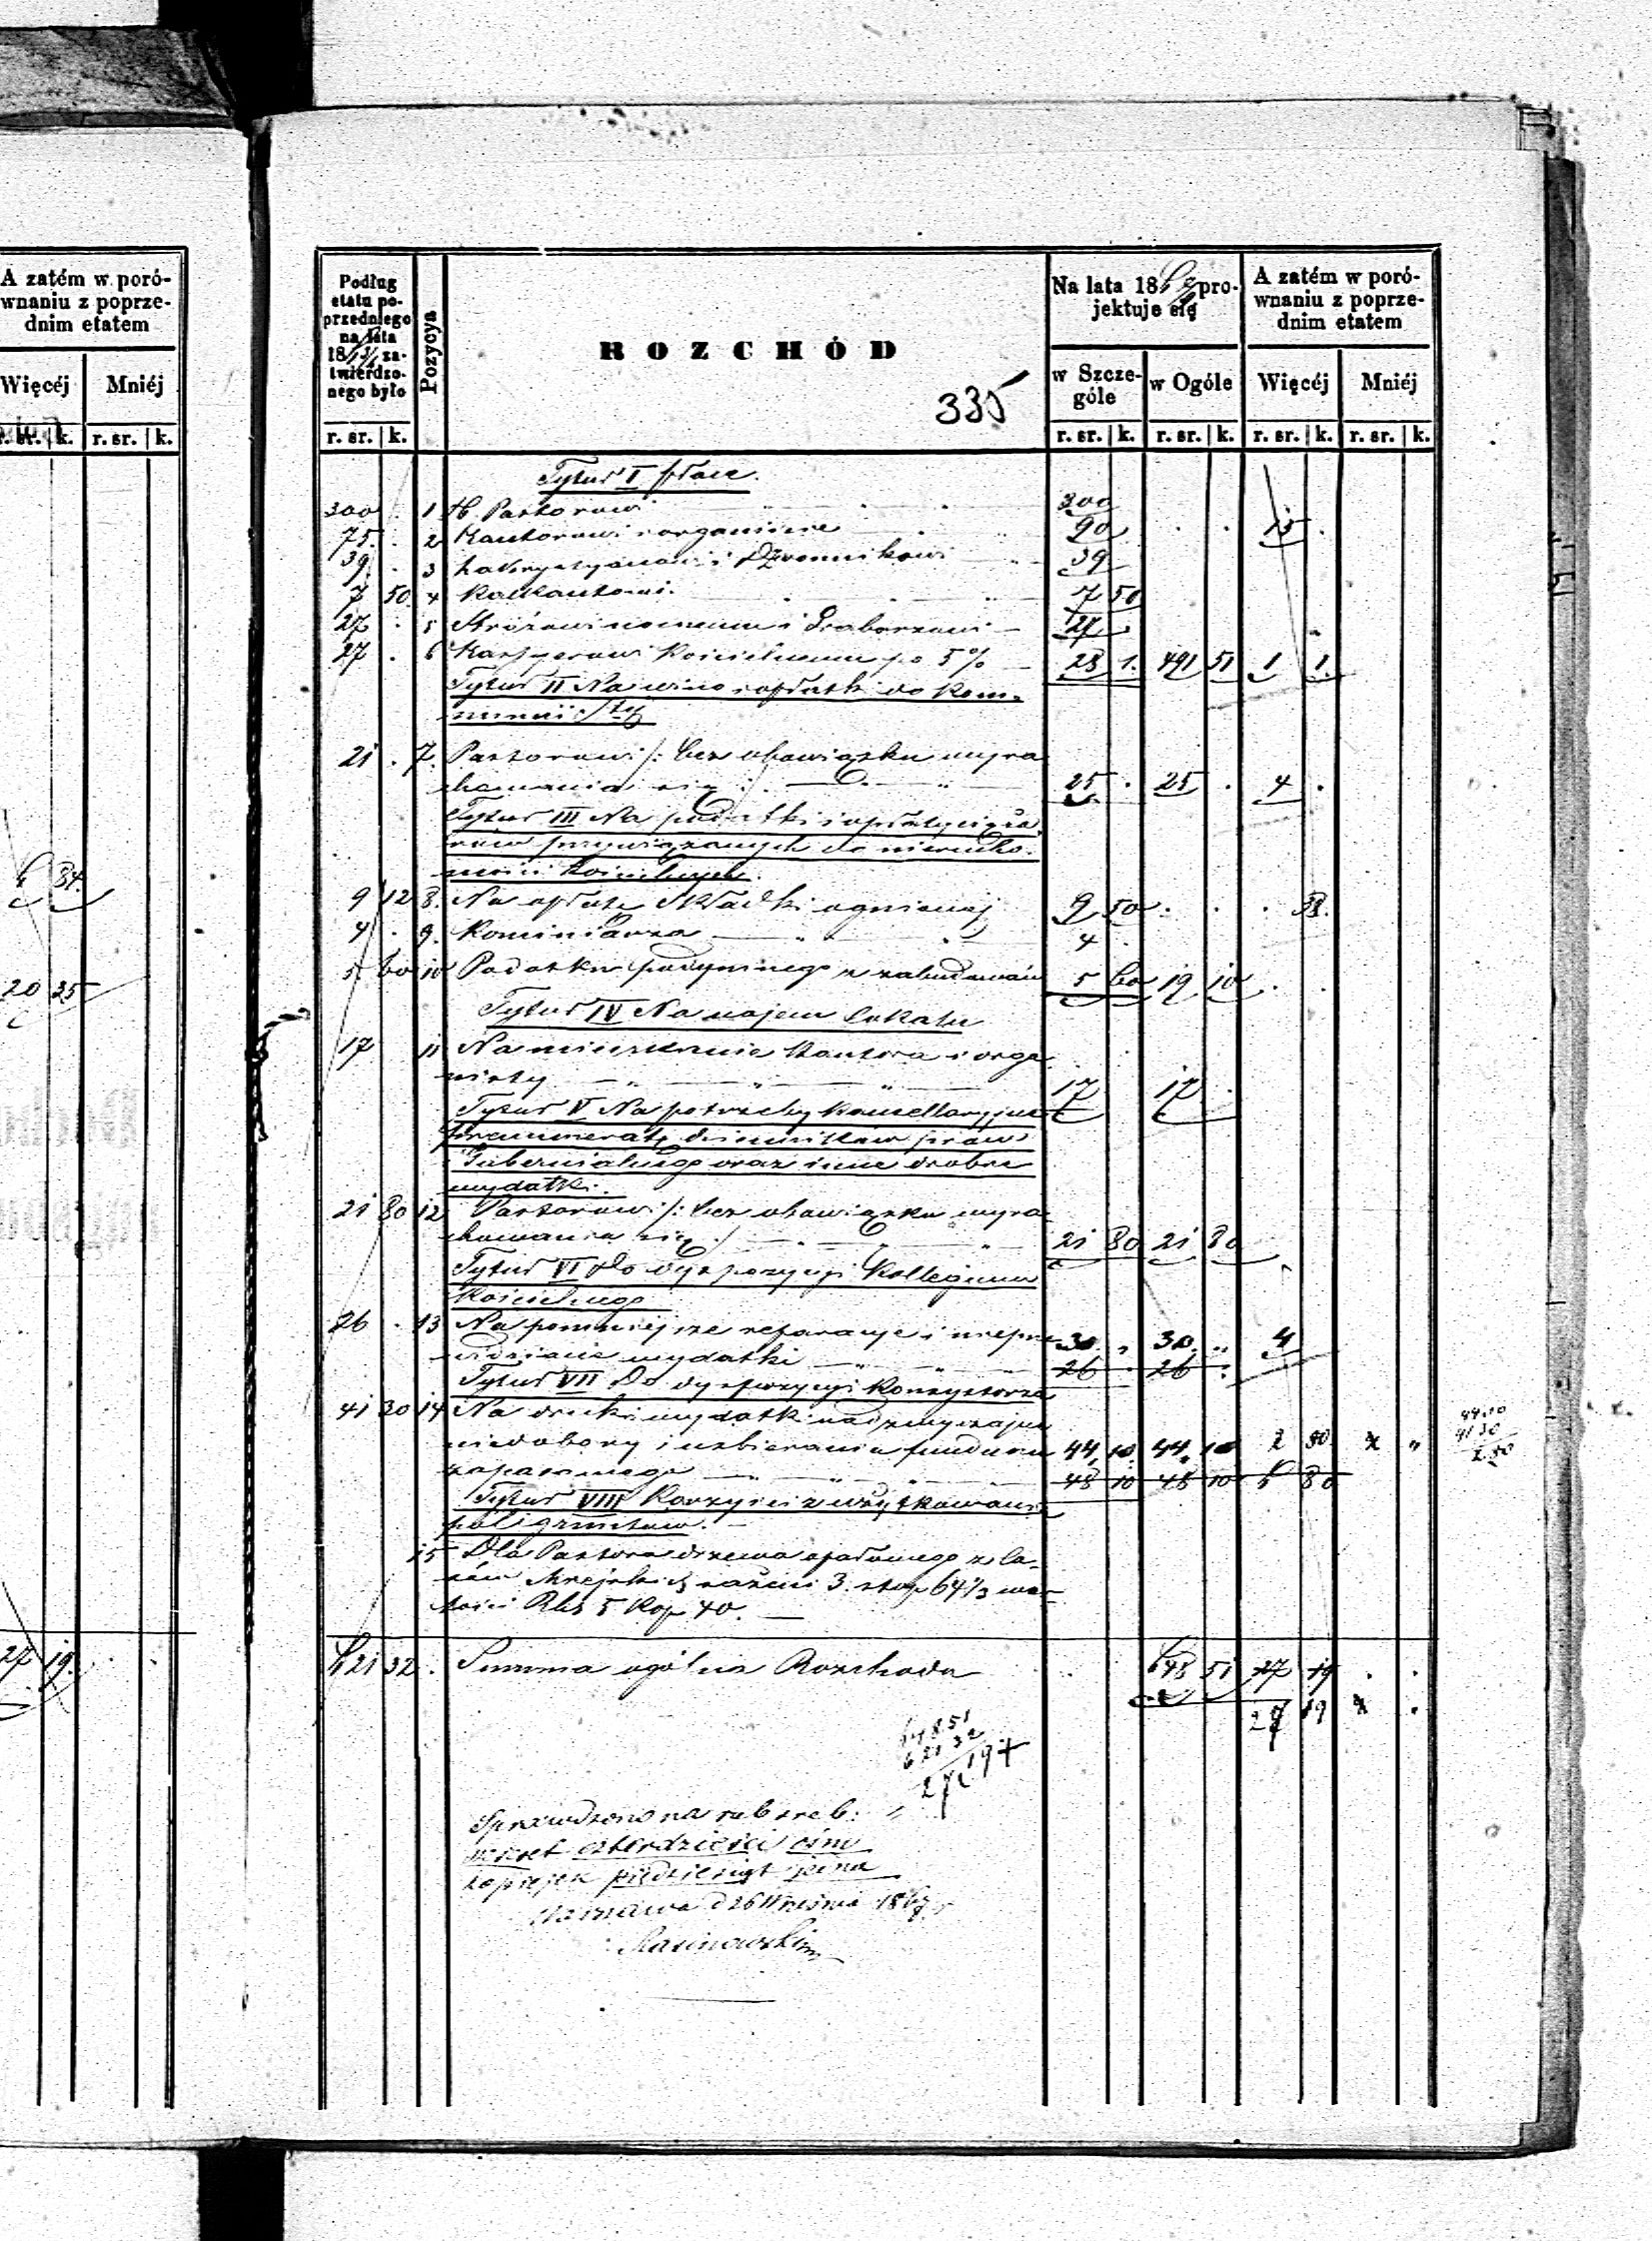 A zatém w poró-
wnaniu z poprze-
dnim etatem
Więcéj Mniéj
r. sr. k. r. sr. k.
6 34
20 35
27 19
Podług
etatu po-
przedniego
na lata
18 za-
twierdzo-
nego było
Pozycya
ROZCHÓD
335
Na lata 18 pro-
jektuje się
w Szcze-
góle
w Ogóle
A zatém w poró-
wnaniu z poprze-
dnim etatem
Więcéj Mniéj
r. sr. k. r. sr. k. r. sr. k. r. sr. k. r. sr. k.
Tytuł I płace.
300 . 1 Pastorowi 300
75 . 2 Kantorowi i organiście 90 . . 15 .
39 . 3 Zakrystyanowi i Dzwonnikowi 39
7 50 4 Kalkantowi 7 50
27 . 5 Stróżowi nocnemu i Grabarzowi 27 .
27 . 6 Kassyerowi Kościelnemu po 5% 28 1. 491 51 1 1
Tytuł II Na wino i opłatki do Kom-
munii Stej
21 . 7. Pastorowi /: bez obowiązku wyra
chowania się :/ 25 . 25 . 4 .
Tytuł III Na podatki i opłaty cięża
rów przywiązanych do nierucho-
mości Kościelnych.
9 12 8. Na opłatę Składki ogniowej 9 50 . . . 38.
4 . 9. Kominiarza 4 .
5 60 10 Podatku podymnego z zabudowań 5 60 19 10 . .
Tytuł IV Na najem lokalu
17 11 Na mieszkanie Kantora i orga
nisty 17 17 .
Tytuł V Na potrzeby Kancellaryjne
prenumeratę dzienników praw
Gubernialnego oraz inne drobne
wydatki.
21 80 12 Pastorowi /: bez obowiązku wyra
chowania się :/ 21 80 21 80
Tytuł VI Do dyspozycyi Kollegium
Kościelnego
26 . 13 Na pomniejsze reparacye i nieprze
widziane wydatki 30 „ 30 „ 4
26 . 26 .
Tytuł VII Do dyspozycyi Konsystorza
41 30 14 Na druki wydatki nadzwyczajne
niedobory i uzbieranie funduszu 44 10 44 10 2 80 „
zapasowego 48 10 48 10 6 80
44.10
41 30
2.80
Tytuł VIII Korzyści z użytkowania
pól i gruntów.
15 Dla Pastora drzewa opałowego z la-
sów Miejskich sążni 3. stóp 64 1/3 war-
tości Rbs 5 Kop 40.
621 32 . Summa ogólna Rozchodu 648 51 27 19 . .
27 19 .
648.51
621 32
27.19 +
Sprawdzono na rub sreb:
sześćset czterdzieści ośm
kopiejek pięćdziesiąt jedna
Warszawa d 26 Września